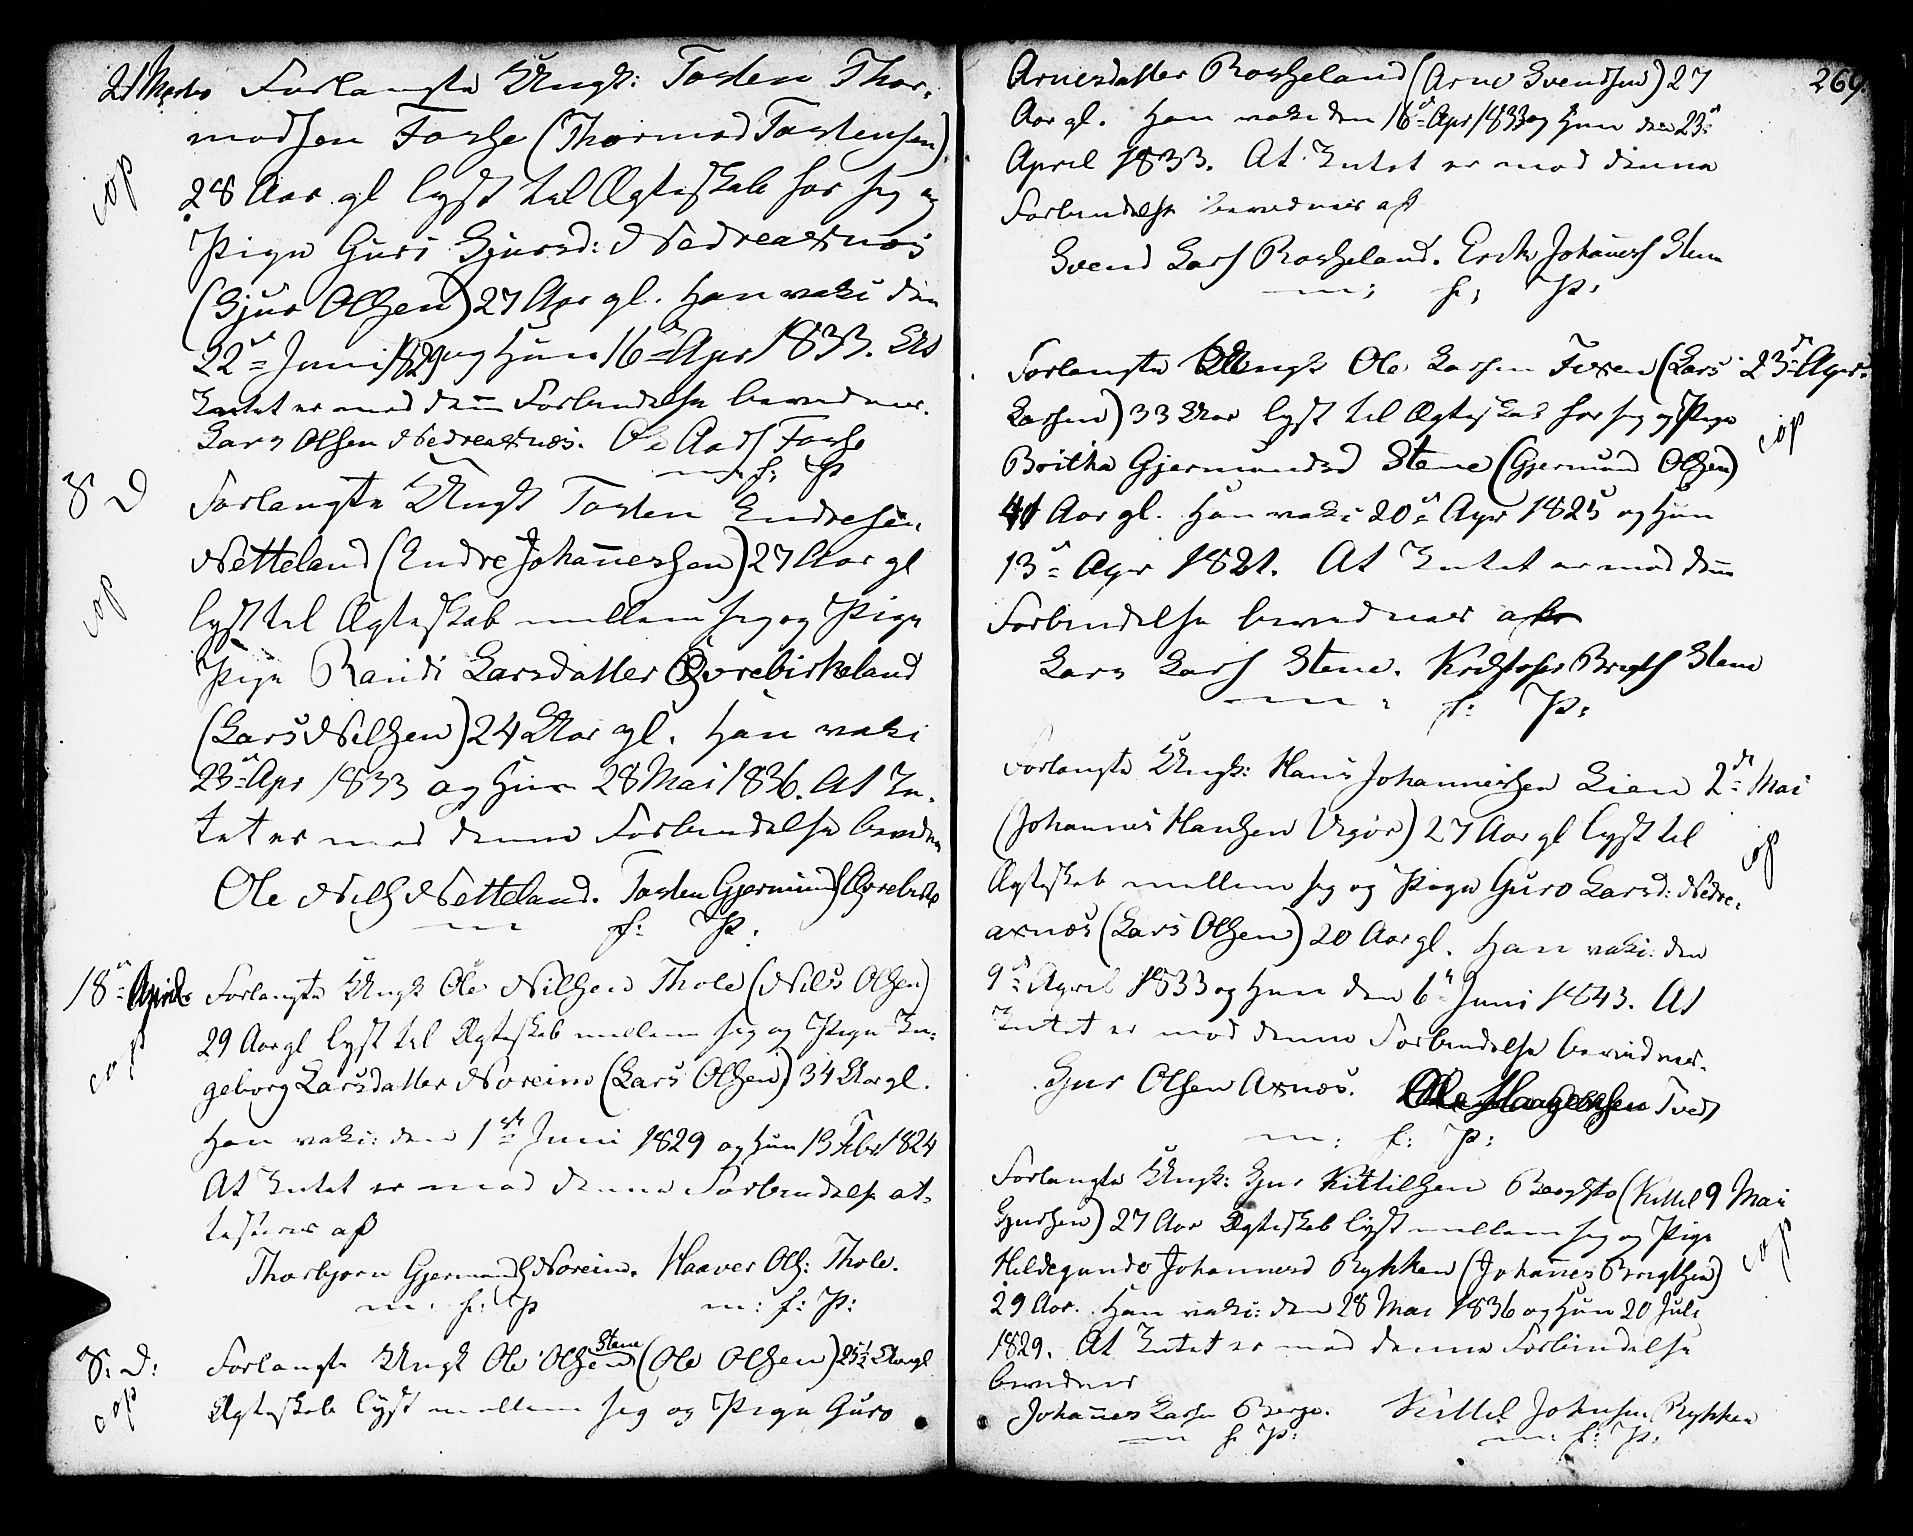 21 Martz Forlangte Ungk: Tosten Thor-
modsen Fosse (Thormod Tostensen)
cop
28 Aar gl lyst til Ægteskab for sig og
Pige Guri Sjursd: Nedreaxnæs
(Sjur Olsen) 27 Aar gl. Han vakc den
22de Juni 1829 og Hun 16de Apr 1833. At
Intet er mod denne Forbindelse bevidner.
Lars Olsen Nedreaxnæs. Ole Aads Fosse
m. f: P
S. D Forlangte Ungk Tosten Endresen
Netteland (Endre Johannessen) 27 Aar gl
cop
lyst til Ægteskab mellem sig og Pige
Pige Randi Larsdatter Øvrebirkeland
(Lars Nilsen) 24 Aar gl. Han vakc
23de Apr 1833 og Hun 28 Mai 1836. At In-
tet er mod denne Forbindelse bevidner
Ole Nils Netteland. Tosten Gjermunds Øvrebirke
m f: P:
18de April Forlangte Ungk Ole Nilsen Thole (Nils Olsen)
29 Aar gl lyst til Ægteskab mellem sig og Pige In-
cop
geborg Larsdatter Noreim (Lars Olsen) 34 Aar gl.
Han vakc: den 1ste Juni 1829 og Hun 13 Febr 1824
At Intet er mod denne Forbindelse at-
testeres af
Thorbjørn Gjermunds Noreim. Haaver Ols: Thole.
m: f: P m: f: P:
S: D: Forlangte Ungk Ole Olsen Stene (Ole Olsen) 25½ Aar gl
cop
Ægteskab lyst mellem sig og Pige Guro
269.
Arnesdatter Rosseland (Arne Svendsen) 27
Aar gl. Han vakc den 16de Apr 1833 og Hun den 23de
April 1833. At Intet er mod denne
Forbindelse bevidner af
Svend Lars Rosseland. Erik Johannes Stene
m: f: P:
Forlangte Ungk Ole Larsen Fixen (Lars 23de Apr:
Larsen) 33 Aar lyst til Ægteskab for sig og Pige
cop
Britha Gjermundsd Stene (Gjermund Olsen)
41 Aar gl. Han vakc 20de Apr 1825 og Hun
13de Apr 1821. At Intet er mod denne
Forbindelse bevidner af
Lars Lars Stene. Kristofer Brygts Stene
m: f: P:
Forlangte Ungk: Hans Johannessen Lien 2de Mai
(Johannes Hansen Vigør) 27 Aar gl lyst til
cop
Ægteskab mellem sig og Pige Guro Larsd: Nedre-
axnæs (Lars Olsen) 20 Aar gl. Han vakc: den
9de April 1833 og Hun den 6te Juni 1843. At
Intet er mod denne Forbindelse bevidner.
Sjur Olsen Axnæs. Tveds
m: f: P:
Forlangte Ungk: Sjur Kittilsen Bergsto (Kittil 9 Mai
Sjursen) 27 Aar Ægteskab lyst mellem sig og Pige
cop
Hildegunde Johannesd Rykken (Johannes Brygtsen)
29 Aar. Han vakc: den 28 Mai 1836 og Hun 20 Juli
1829. At Intet er mod denne Forbindelse
bevidner
Johannes Larsen Berge. Kittil Johnsen Rykken
m f: P: m: f: P: